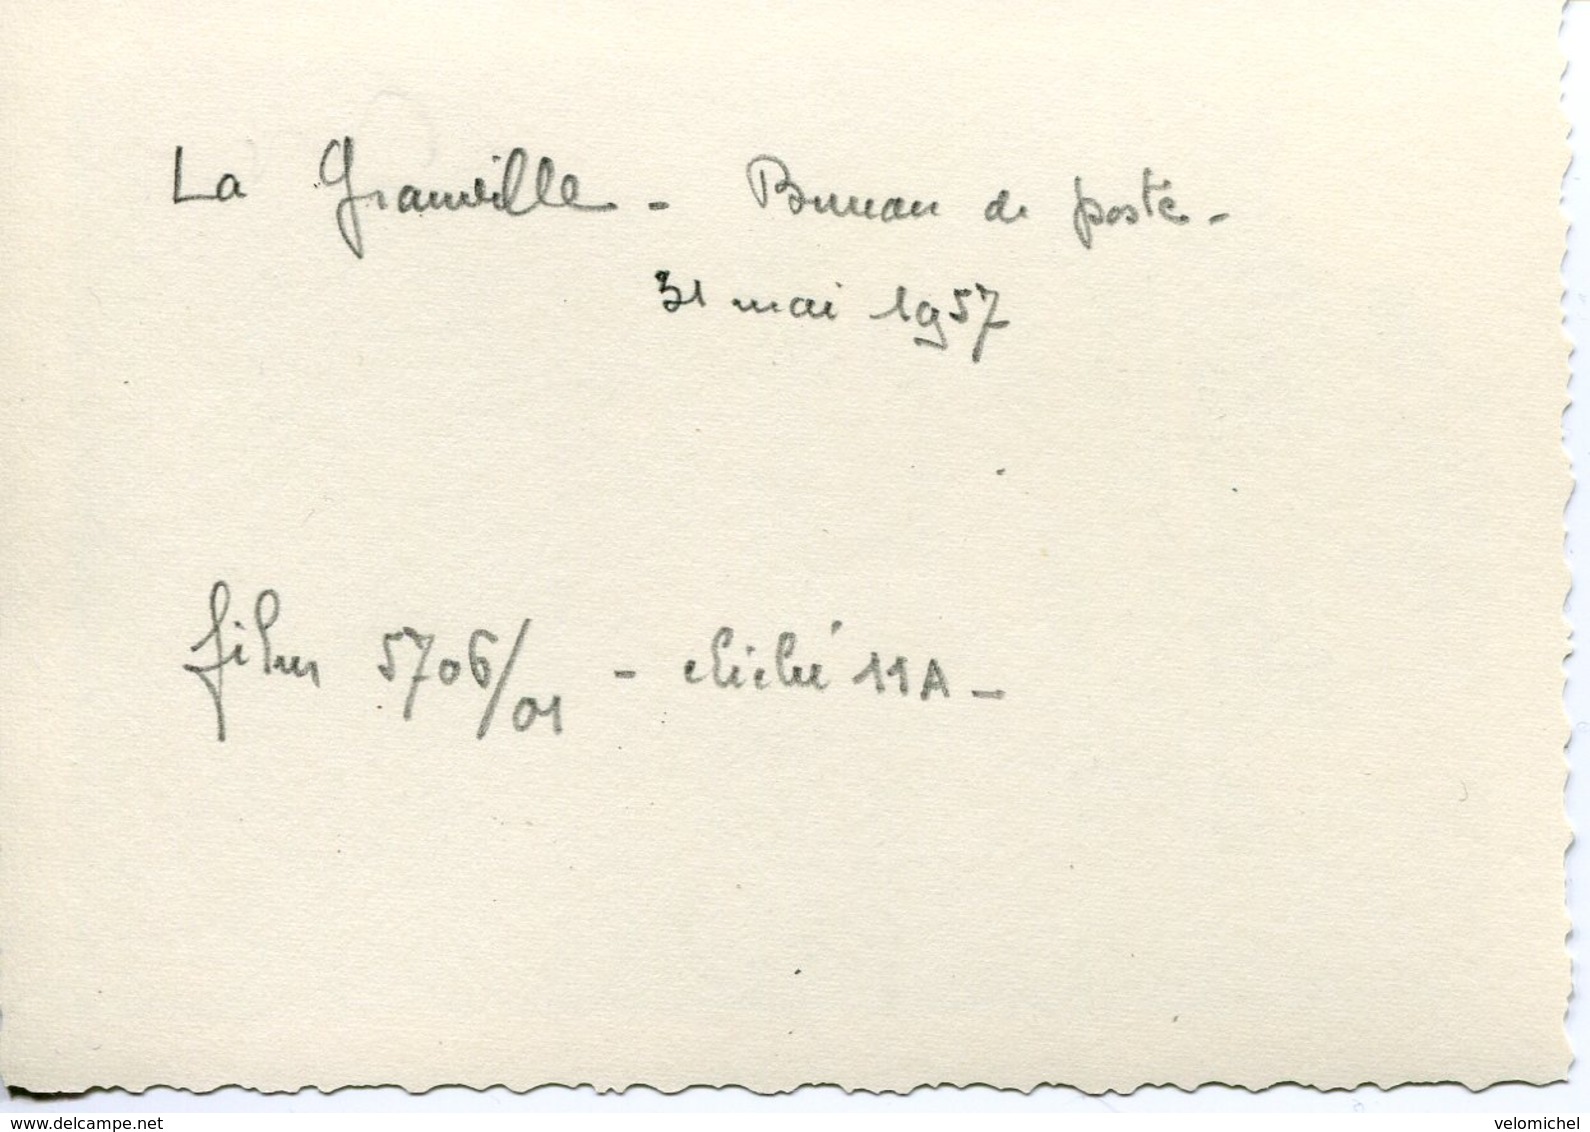 La Granville - Bureau de poste -
31 mai 1957
film 5706/01 - cliché 11A -
www.delcampe.net
velomichel